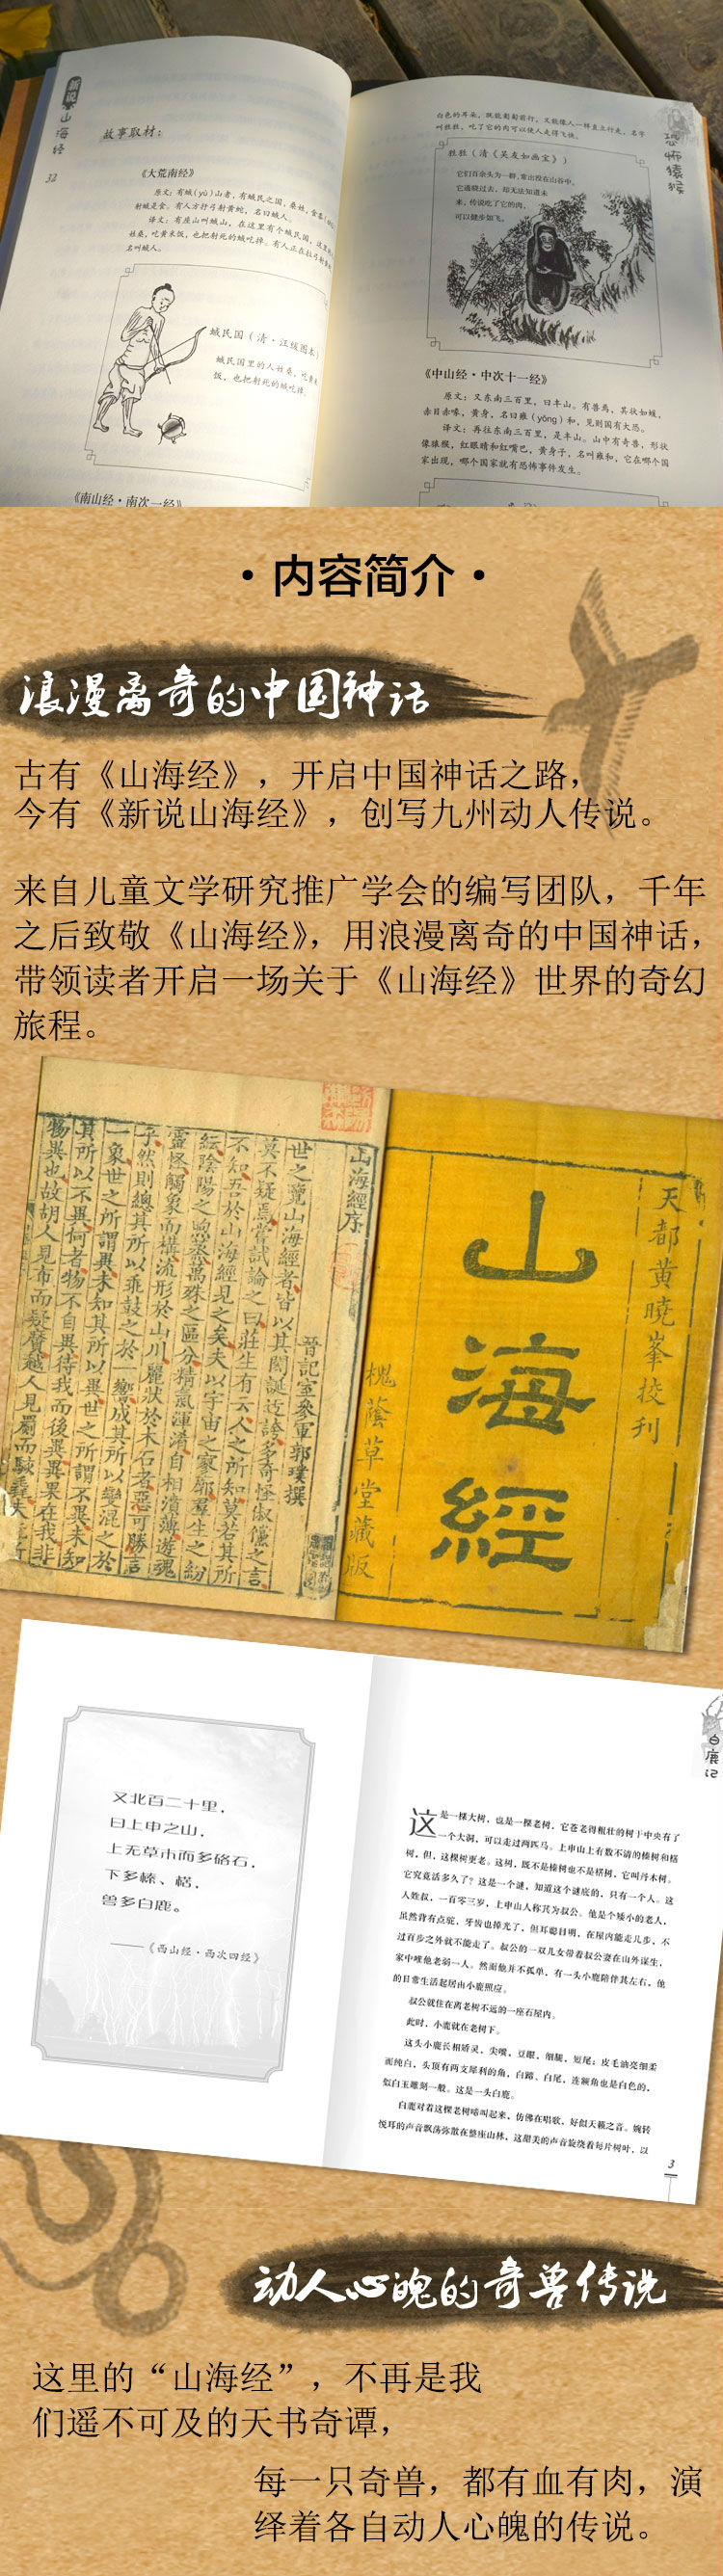 新说山海经
32
故事取材：
《大荒南经》
原文：有蜮（yù）山者，有蜮民之国，桑姓，食黍，
射蜮是食。有人方扜弓射黄蛇，名曰蜮人。
译文：有座山叫蜮山，在这里有个蜮民国，这里
姓桑，吃黄米饭，也把射死的蜮吃掉。有人正在拉弓射黄
名叫蜮人。
蜮民国（清·汪绂图本）
蜮民国里的人姓桑，吃黄米
饭，也把射死的蜮吃掉。
《南山经·南次一经》
恐怖猿猴
白色的耳朵，既能匍匐前行，又能像人一样直立行走，名字
叫狌狌，吃了它的肉可以使人走得飞快。
狌狌（清《吴友如画宝》）
它们百余头为一群，常出没在山谷中。
来，传说吃了它的肉，
可以健步如飞。
《中山经·中次十一经》
原文：又东南三百里，曰丰山。有兽焉，其状如蝯，
赤目赤喙，黄身，名曰雍（yōng）和，见则国有大恐。
译文：再往东南三百里，是丰山。山中有奇兽，形状
像猿猴，红眼睛和红嘴巴，黄身子，名叫雍和，它在哪个国
家出现，哪个国家就有恐怖事件发生。
·内容简介·
浪漫离奇的中国神话
古有《山海经》，开启中国神话之路，
今有《新说山海经》，创写九州动人传说。
来自儿童文学研究推广学会的编写团队，千年
之后致敬《山海经》，用浪漫离奇的中国神话，
带领读者开启一场关于《山海经》世界的奇幻
旅程。
天都黄曉峯挍刊
山海經
槐蔭草堂藏版
山海經序
晉記室參軍郭璞撰
世之覽山海經者皆以其閎誕迂誇多奇怪俶儻之言
莫不疑焉嘗試論之曰莊生有云人之所知莫若其所
不知吾於山海經見之矣夫以宇宙之寥廓羣生之紛
紜陰陽之煦蒸萬殊之區分精氣渾淆自相濆薄遊魂
靈怪觸象而構流形於山川麗狀於木石者惡可勝言
乎然則總其所以乖鼓之於一響成其所以變混之於
一象世之所謂異未知其所以異世之所謂不異未知
其所以不異何者物不自異待我而後異異果在我非
物異也故胡人見布而疑黂越人見罽而駭毳夫
又北百二十里，
曰上申之山，
上无草木而多硌石，
下多榛、楛，
兽多白鹿。
——《西山经·西次四经》
白鹿记
这是一棵大树，也是一棵老树，它苍老得粗壮的树干中央有了
一个大洞，可以走过两匹马。上申山上有数不清的榛树和楛
树，但，这棵树更老。这树，既不是榛树也不是楛树，它叫丹木树。
它究竟活多久了？这是一个谜，知道这个谜底的，只有一个人。这
人姓叔，一百零三岁，上申山人称其为叔公。他是个矮小的老人，
虽然背有点驼，牙齿也掉光了，但耳聪目明，在屋内能走几步，不
过百步之外就不能走了。叔公的一双儿女带着叔公妻在山外谋生，
家中唯他老弱一人。然而他并不孤单，有一头小鹿陪伴其左右，他
的日常生活起居由小鹿照应。
叔公就住在离老树不远的一座石屋内。
此时，小鹿就在老树下。
这头小鹿长相娇灵，尖嘴，豆眼，细腿，短尾；皮毛油亮细柔
而纯白，头顶有两支犀利的角，白蹄、白尾，连额角也是白色的，
似白玉雕刻一般。这是一头白鹿。
白鹿对着这棵老树嘶叫起来，仿佛在唱歌，好似天籁之音。婉转
悦耳的声音飘荡弥散在整座山林，这甜美的声音旋绕着每片树叶，以
3
动人心魄的奇兽传说
这里的“山海经”，不再是我
们遥不可及的天书奇谭，
每一只奇兽，都有血有肉，演
绎着各自动人心魄的传说。